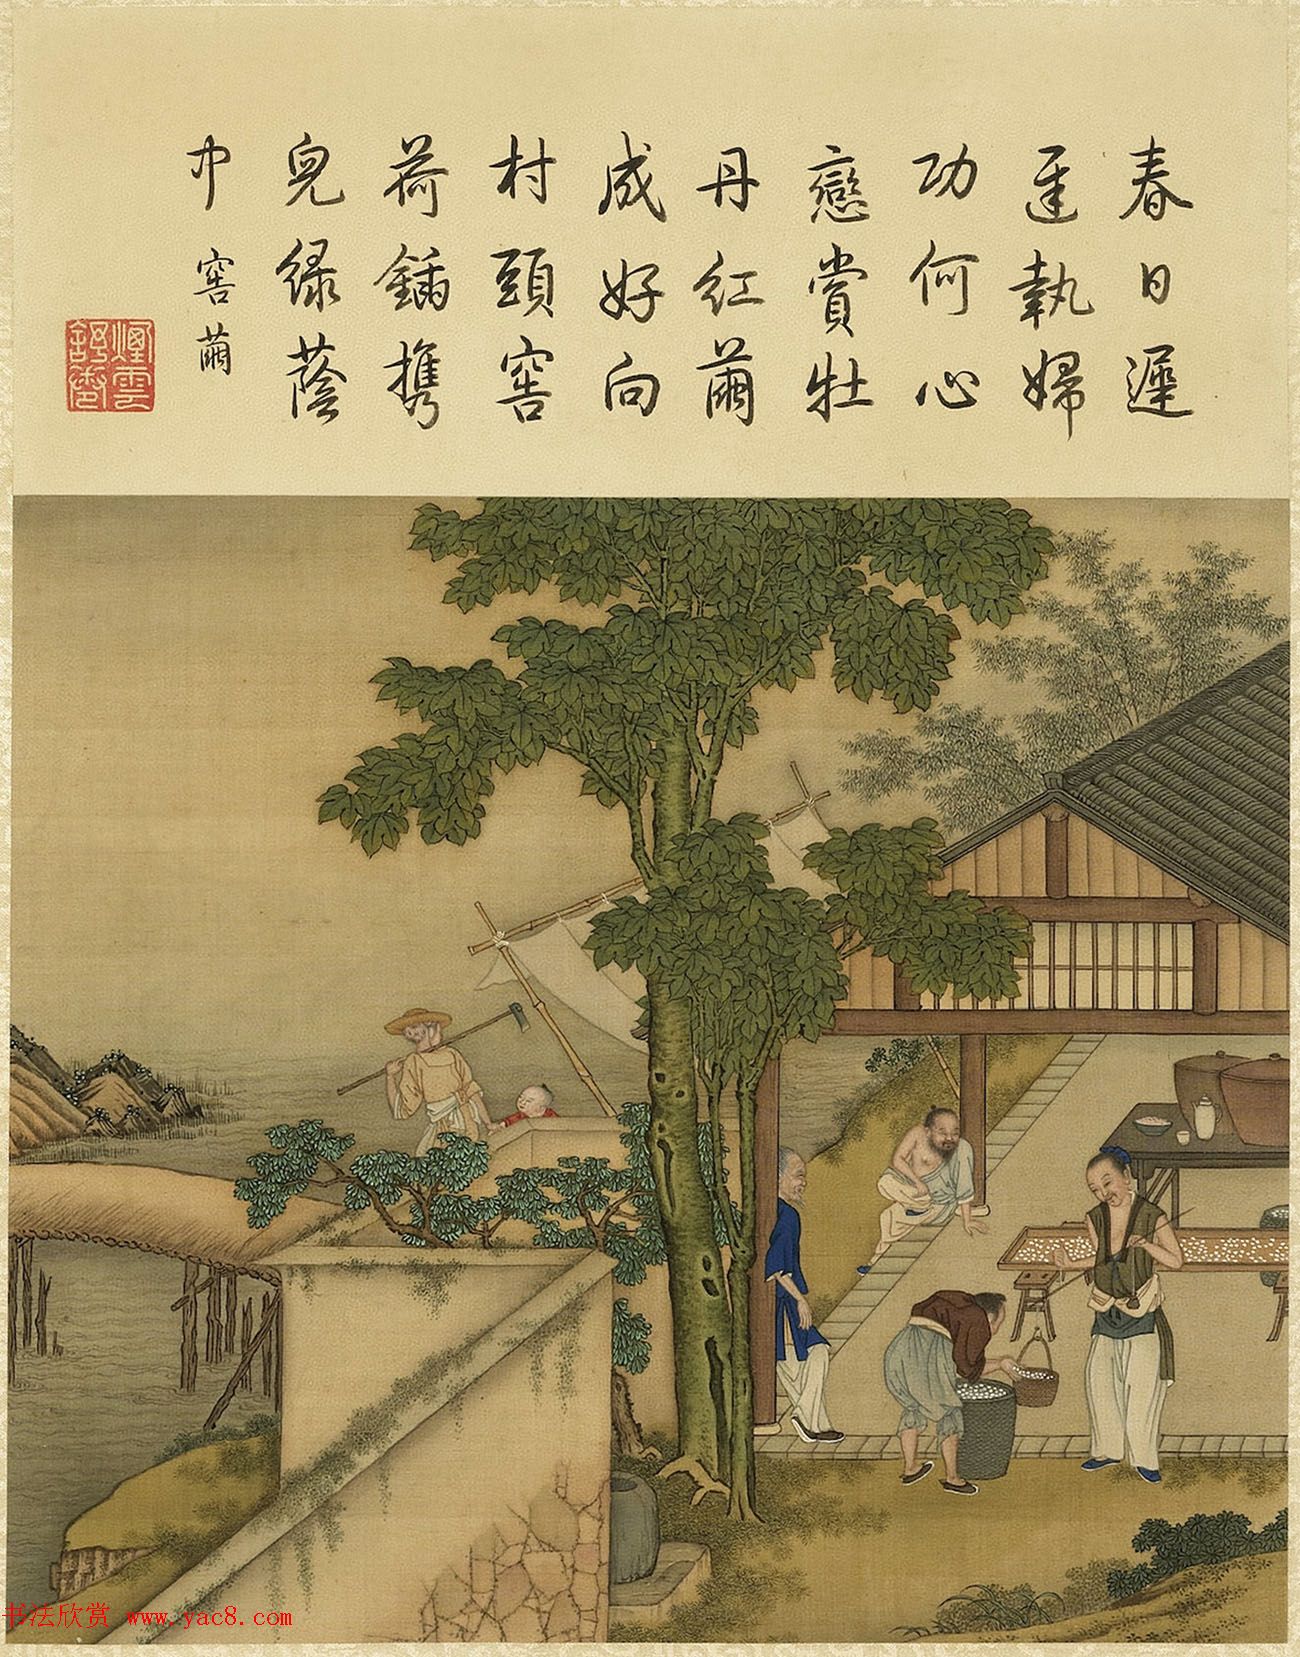 春日遲
遲執婦
功何心
戀賞牡
丹紅繭
成好向
村頭窖
荷鍤携
兒綠蔭
中 窖繭
煙雲舒卷
书法欣赏 www.yac8.com